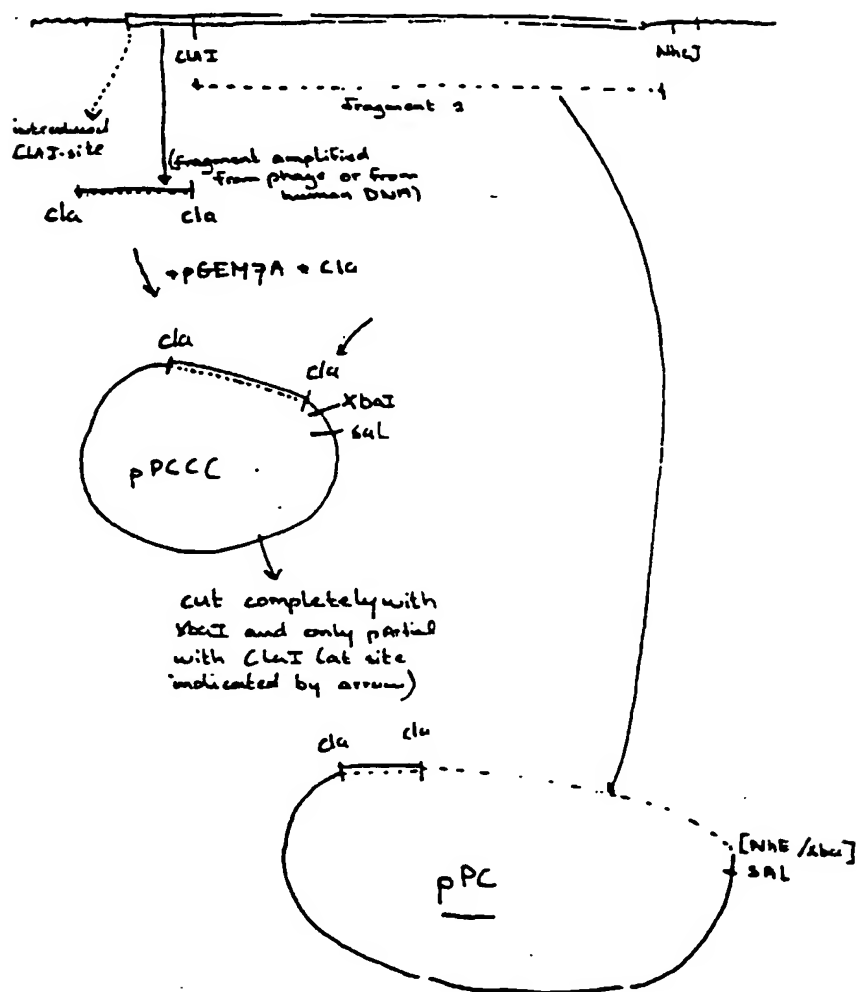 ClAI
NheI
fragment 2
introduced
ClAI-site
(fragment amplified
from phage or from
human DNA)
cla
cla
+pGEM7A * Cla
cla
cla
XbaI
saL
pPCCC
cut completely with
XbaI and only partial
with ClaI (at site
indicated by arrow)
cla
cla
[NhE/xba]
SAL
pPC